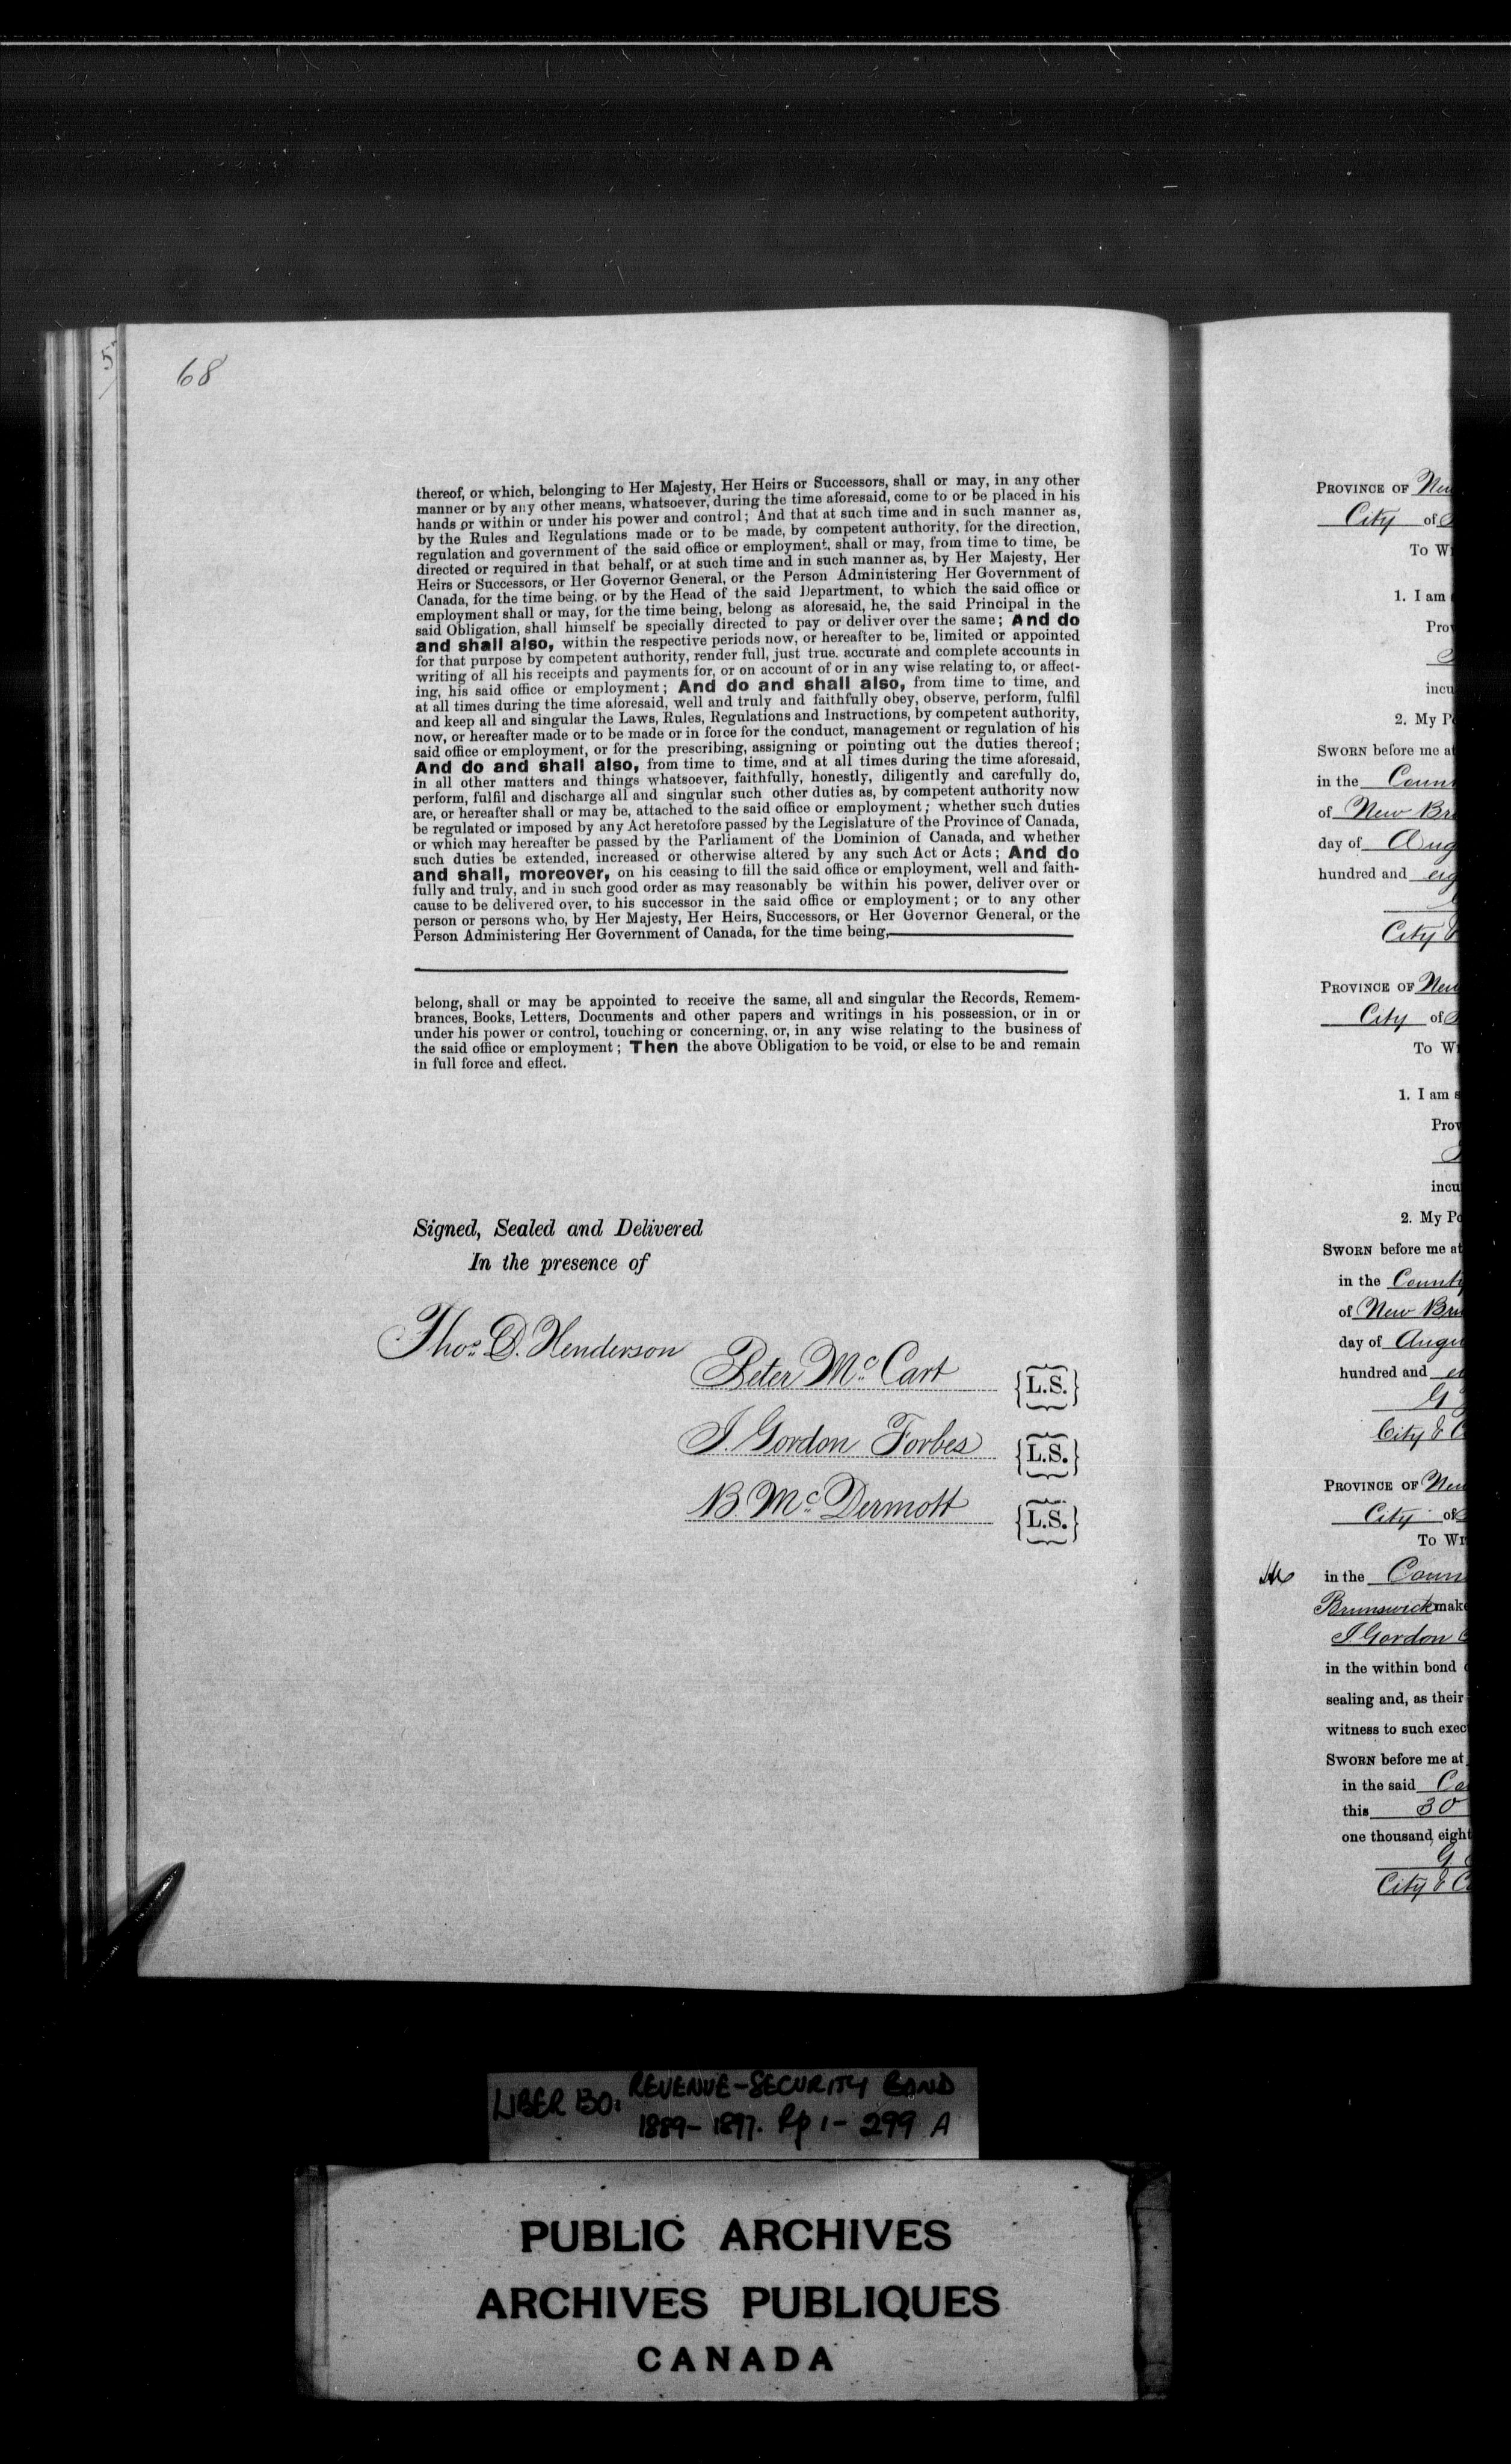 5
68
thereof, or which, belonging to Her Majesty, Her Heirs or Successors, shall or may, in any other
manner or by any other means, whatsoever, during the time aforesaid, come to or be placed in his
hands or within or under his power and control; And that at such time and in such manner as,
by the Rules and Regulations made or to be made, by competent authority, for the direction,
regulation and government of the said office or employment, shall or may, from time to time, be
directed or required in that behalf, or at such time and in such manner as, by Her Majesty, Her
Heirs or Successors, or Her Governor General, or the Person Administering Her Government of
Canada, for the time being, or by the Head of the said Department, to which the said office or
employment shall or may, for the time being, belong as aforesaid, he, the said Principal in the
said Obligation, shall himself be specially directed to pay or deliver over the same; And do
and shall also, within the respective periods now, or hereafter to be, limited or appointed
for that purpose by competent authority, render full, just true. accurate and complete accounts in
writing of all his receipts and payments for, or on account of or in any wise relating to, or affect-
ing, his said office or employment; And do and shall also, from time to time, and
at all times during the time aforesaid, well and truly and faithfully obey, observe, perform, fulfil
and keep all and singular the Laws, Rules, Regulations and Instructions, by competent authority,
now, or hereafter made or to be made or in force for the conduct, management or regulation of his
said office or employment, or for the prescribing, assigning or pointing out the duties thereof;
And do and shall also, from time to time, and at all times during the time aforesaid,
in all other matters and things whatsoever, faithfully, honestly, diligently and carefully do,
perform, fulfil and discharge all and singular such other duties as, by competent authority now
are, or hereafter shall or may be, attached to the said office or employment; whether such duties
be regulated or imposed by any Act heretofore passed by the Legislature of the Province of Canada,
or which may hereafter be passed by the Parliament of the Dominion of Canada, and whether
such duties be extended, increased or otherwise altered by any such Act or Acts; And do
and shall, moreover, on his ceasing to fill the said office or employment, well and faith-
fully and truly, and in such good order as may reasonably be within his power, deliver over or
cause to be delivered over, to his successor in the said office or employment; or to any other
person or persons who, by Her Majesty, Her Heirs, Successors, or Her Governor General, or the
Person Administering Her Government of Canada, for the time being,
belong, shall or may be appointed to receive the same, all and singular the Records, Remem-
brances, Books, Letters, Documents and other papers and writings in his possession, or in or
under his power or control, touching or concerning, or, in any wise relating to the business of
the said office or employment; Then the above Obligation to be void, or else to be and remain
in full force and effect.
Signed, Sealed and Delivered
In the presence of
Thos. D. Henderson
Peter Mc Cart {L.S.}
J. Gordon Forbes {L.S.}
B. Mc Dermott {L.S.}
PROVINCE OF New
City of
To W
1. I am
Prov
incu
2. My P
SWORN before me at
in the Coun
of New Bru
day of Aug
hundred and eig
City &
PROVINCE OF New
City of
To W
1. I am s
Prov
incu
2. My Po
SWORN before me at
in the County
of New Bru
day of Augu
hundred and ei
G
City & C
PROVINCE OF New
City of
To Wi
in the Coun
Brunswick make
J. Gordon
in the within bond
sealing and, as their
witness to such exec
SWORN before me at
in the said Co
this 30
one thousand eight
G
City & C
LIBER 130: REVENUE-SECURITY BOND
1889-1897. Pp 1-299 A
PUBLIC ARCHIVES
ARCHIVES PUBLIQUES
CANADA